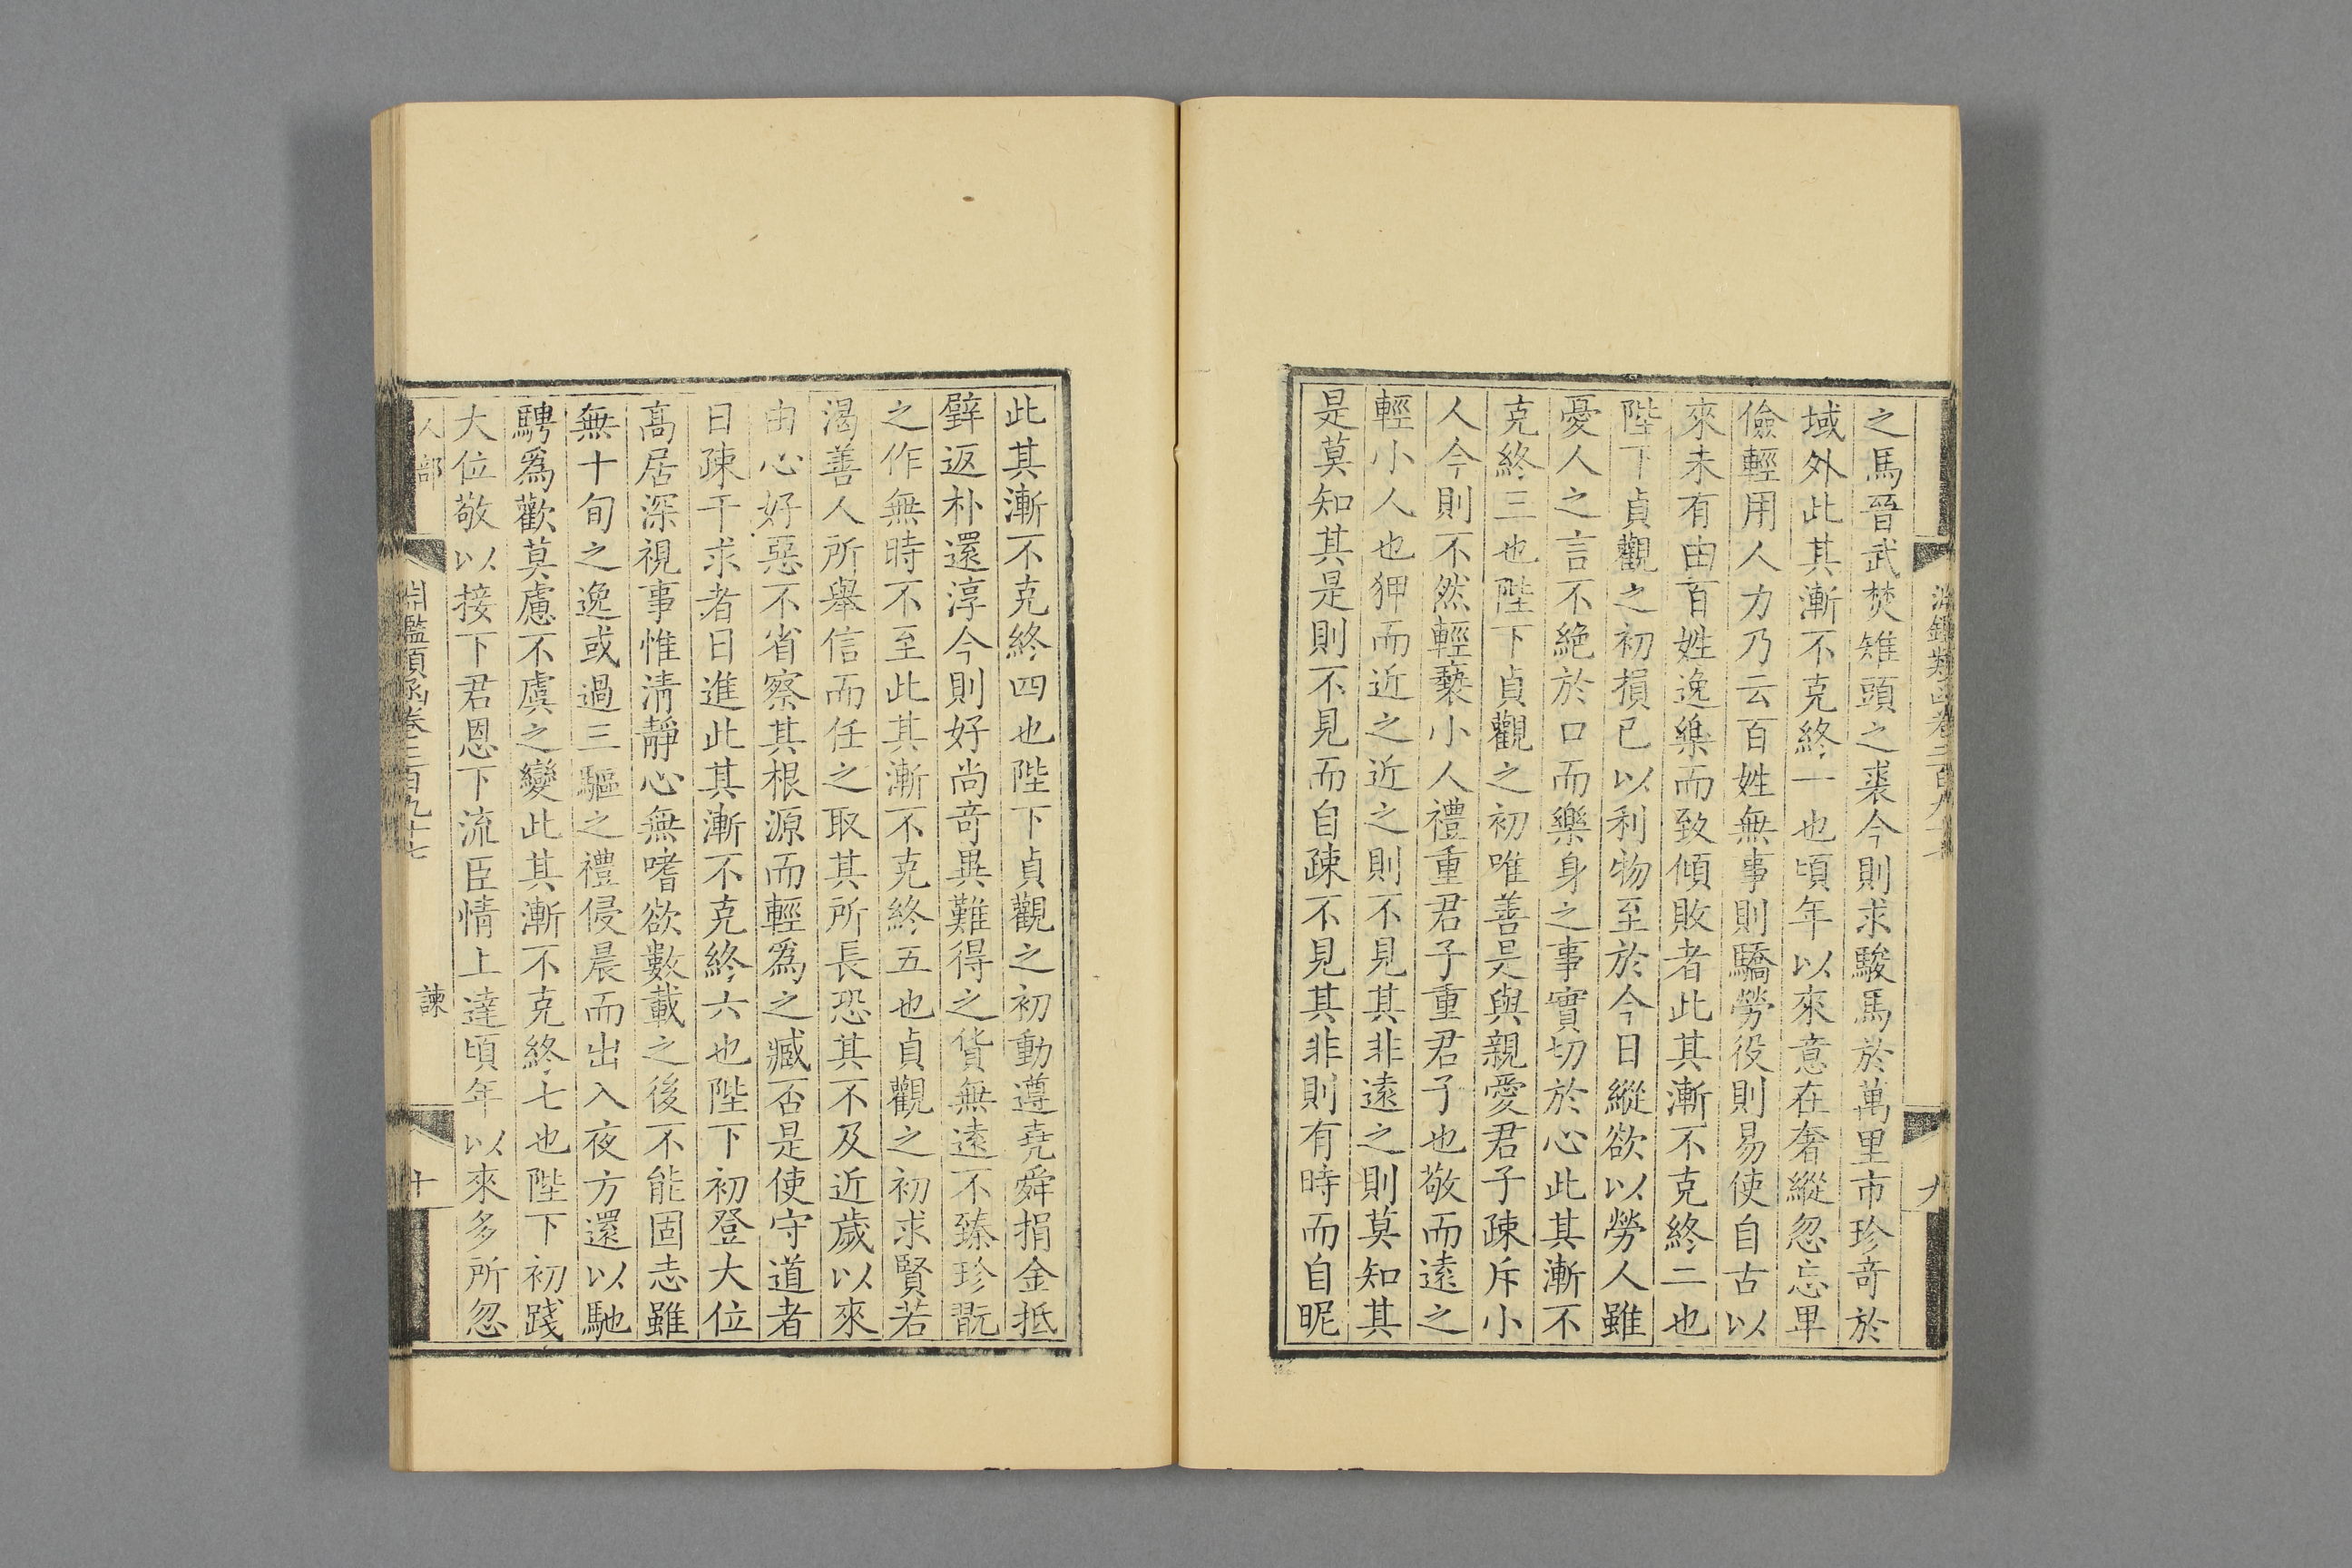 之馬晉武焚雉頭之裘今則求駿馬於萬里市珍奇於
域外此其漸不克終一也頃年以來意在奢縱忽忘卑
儉輕用人力乃云百姓無事則驕勞役則易使自古以
來未有由百姓逸樂而致傾敗者此其漸不克終二也
陛下貞觀之初損己以利物至於今日縱欲以勞人雖
憂人之言不絶於口而樂身之事實切於心此其漸不
克終三也陛下貞觀之初唯善是與親愛君子疎斥小
人今則不然輕褻小人禮重君子重君子也敬而遠之
輕小人也狎而近之近之則不見其非遠之則莫知其
是莫知其是則不見而自疎不見其非則有時而自昵
九
此其漸不克終四也陛下貞觀之初動遵堯舜捐金抵
璧返朴還淳今則好尚奇異難得之貨無遠不臻珍翫
之作無時不至此其漸不克終五也貞觀之初求賢若
渴善人所舉信而任之取其所長恐其不及近歲以來
由心好惡不省察其根源而輕爲之臧否是使守道者
日疎干求者日進此其漸不克終六也陛下初登大位
高居深視事惟清靜心無嗜欲數載之後不能固志雖
無十旬之逸或過三驅之禮侵晨而出入夜方還以馳
騁爲歡莫慮不虞之變此其漸不克終七也陛下初踐
大位敬以接下君恩下流臣情上達頃年以來多所忽
人部 淵鑑類函卷二百九十七 諫 十